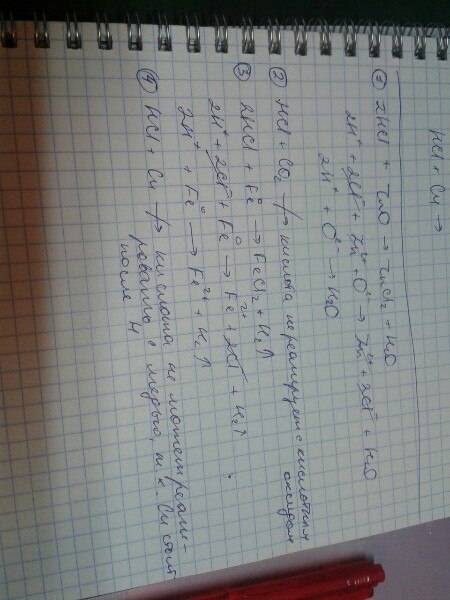 HCl + Cu →
① 2HCl + ZnO → ZnCl₂ + H₂O
2H⁺ + 2Cl⁻ + Zn²⁺ + O²⁻ → Zn²⁺ + 2Cl⁻ + H₂O
2H⁺ + O²⁻ → H₂O
② HCl + CO₂ ↛ кислота не реагирует с кислотным
оксидом
③ 2HCl + Fe⁰ → FeCl₂ + H₂↑
2H⁺ + 2Cl⁻ + Fe⁰ → Fe²⁺ + 2Cl⁻ + H₂↑
2H⁺ + Fe⁰ → Fe²⁺ + H₂↑
④ HCl + Cu ↛ кислота не может реаги-
ровать с медью, т к. Cu стоит
после H